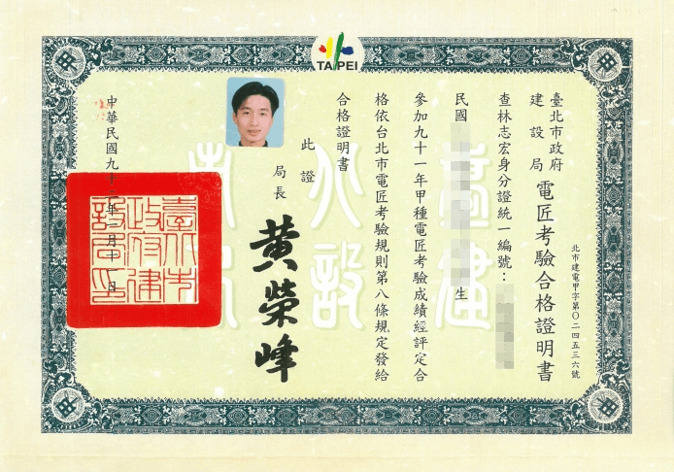 TAIPEI
北市建電甲字第〇二四五三六號
臺北市政府
建設局
電匠考驗合格證明書
查林志宏身分證統一編號：
民國
生
參加九十一年甲種電匠考驗成績經評定合
格依台北市電匠考驗規則第八條規定發給
合格證明書
此證
局長
黃榮峰
中華民國九十
年
月十
日
臺北市
政府建
設局印